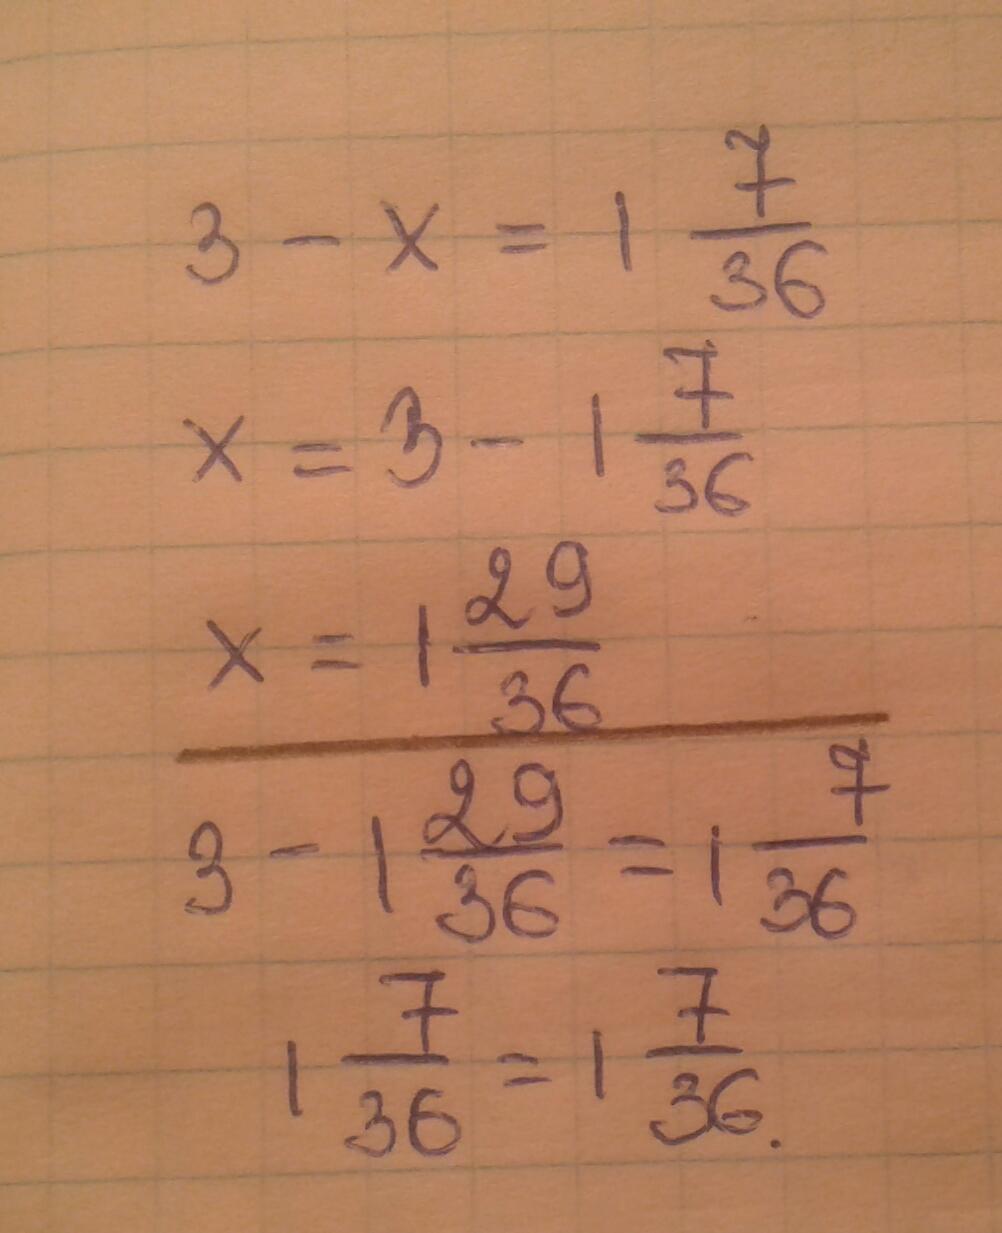 3 - x = 1 7/36
x = 3 - 1 7/36
x = 1 29/36
3 - 1 29/36 = 1 7/36
1 7/36 = 1 7/36.